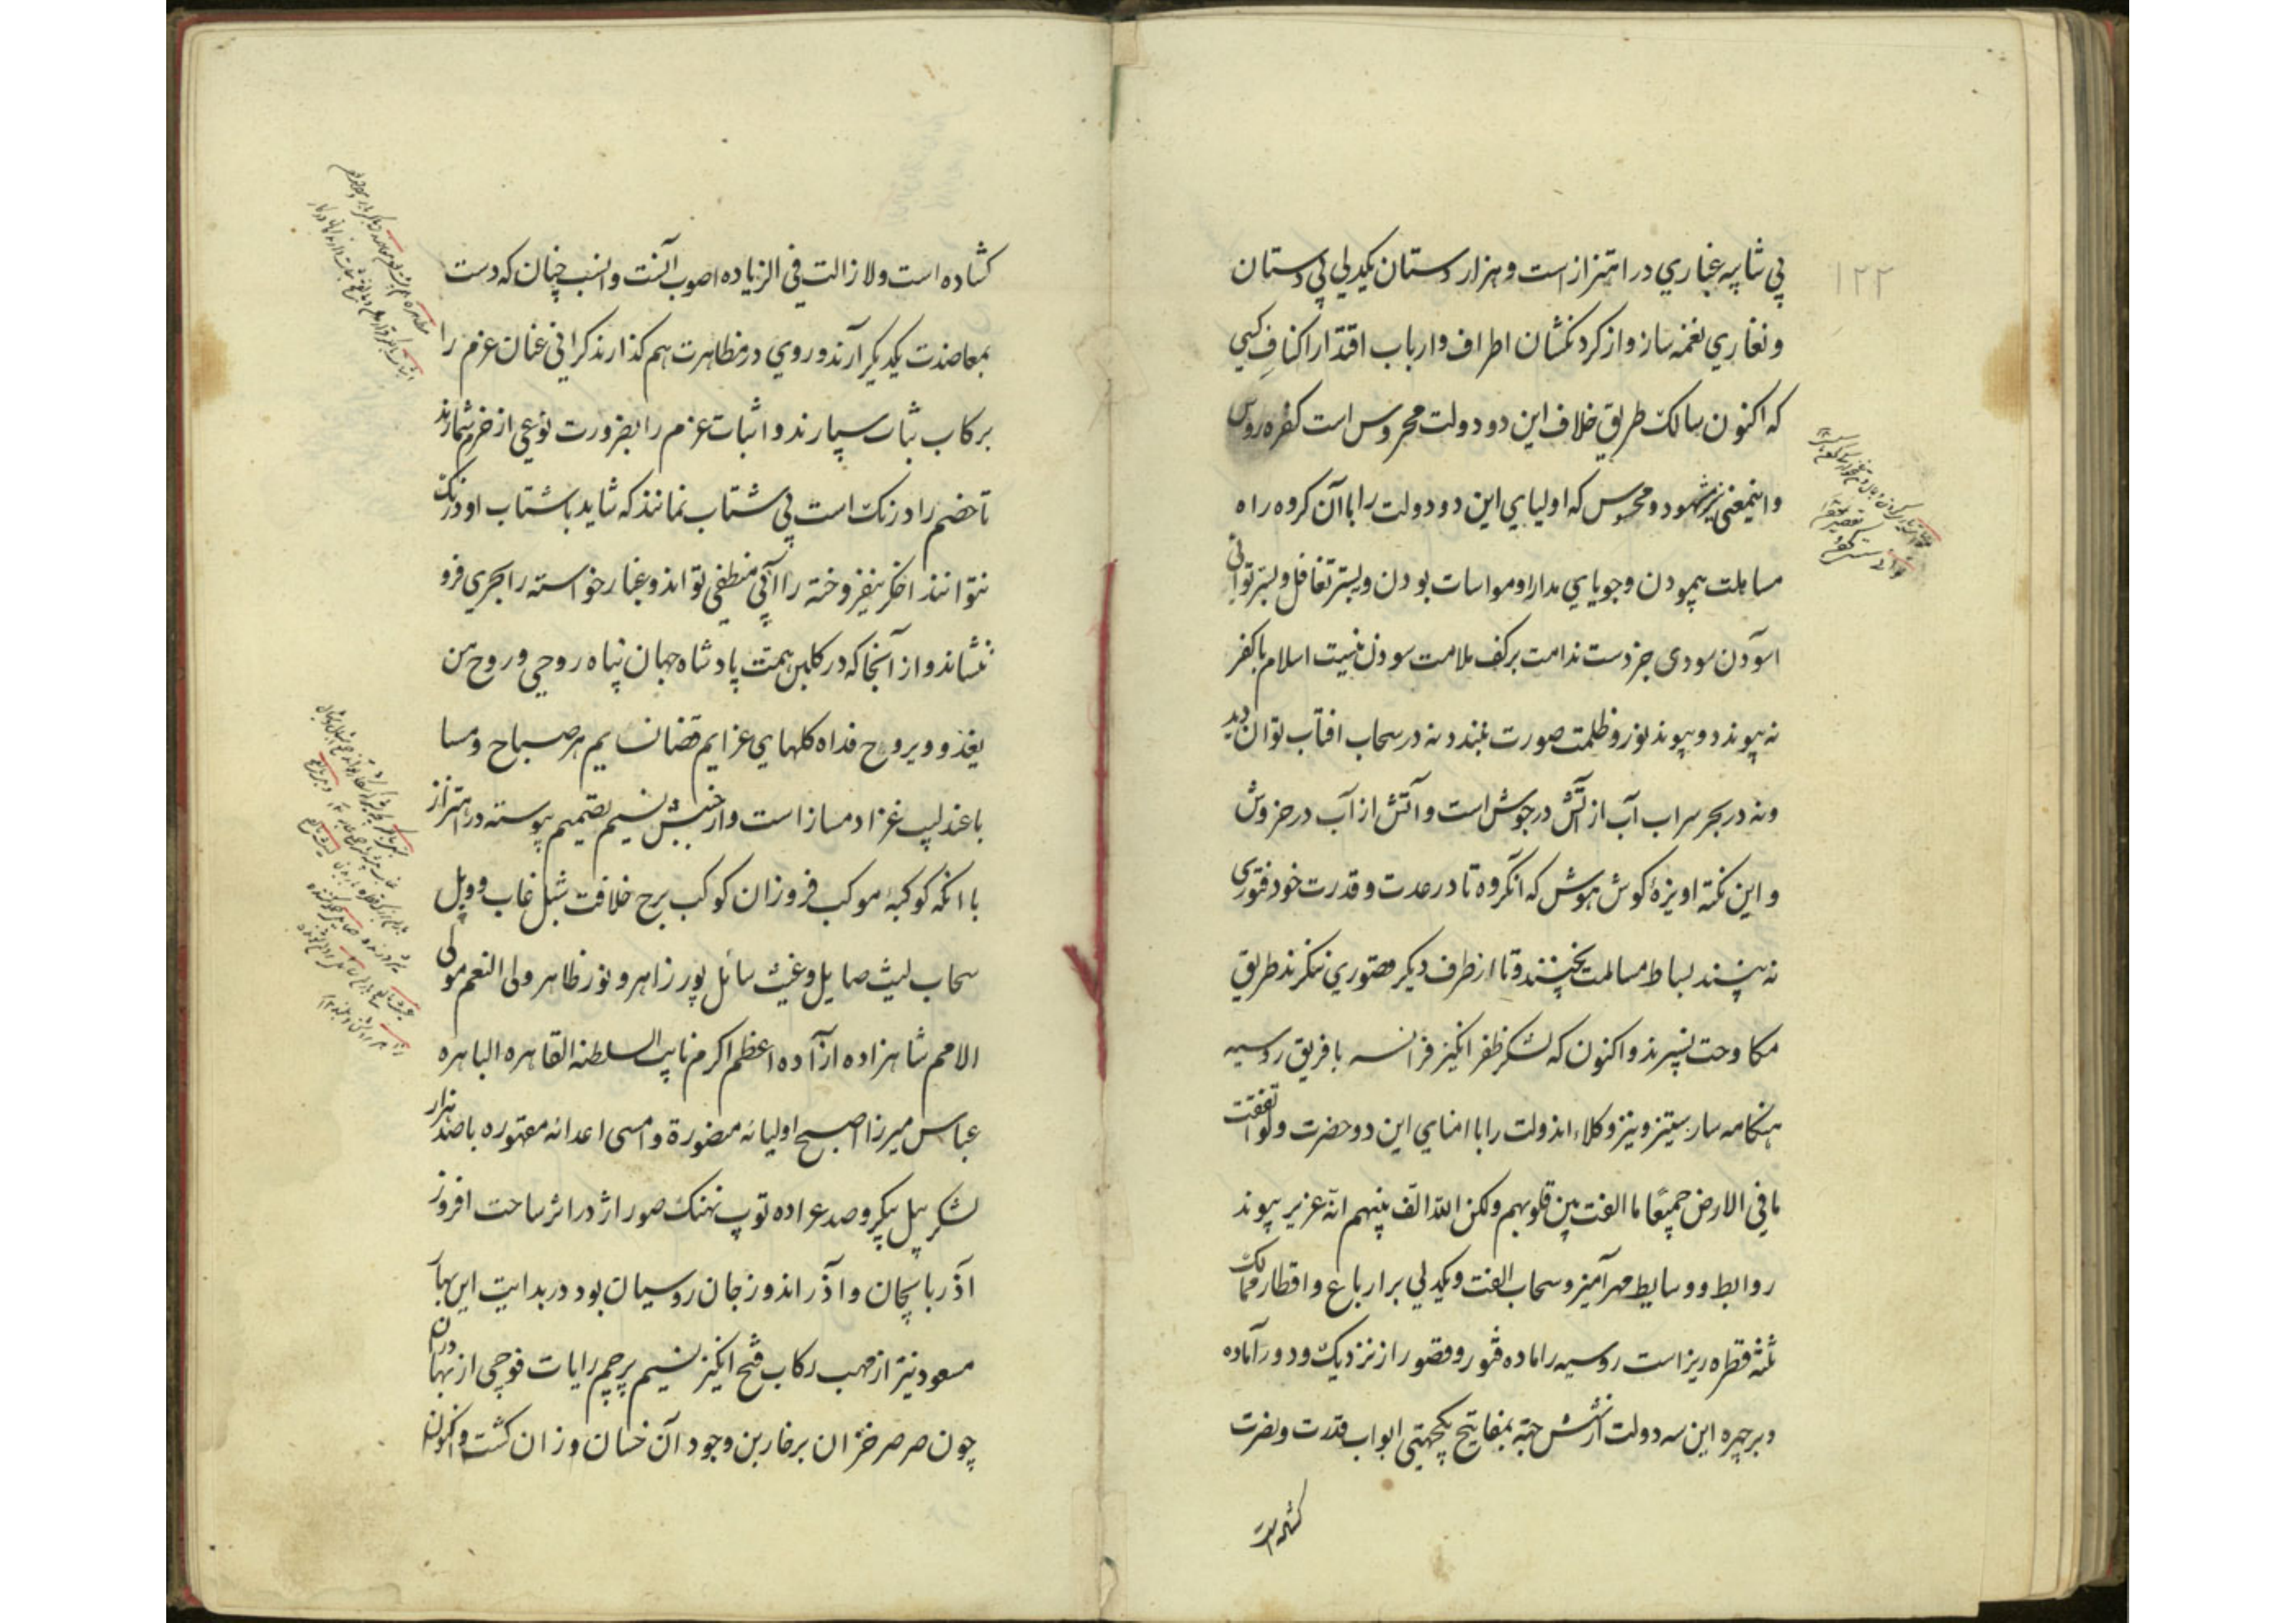 ۱۲۲
بی شایبه غباری در اهتزاز است و هزار دستان یکدلی بی دستان
و نغاری نغمه ساز و از کردنکشان اطراف و ارباب اقتدار اکناف کسی
که اکنون سالک طریق خلاف این دو دولت محروس است کفره روس
و اینمعنی نیز مشهود و محسوس که اولیای این دو دولت را با آن کروه راه
مساهلت پیمودن و جویای مدارا و مواسات بودن و بستر تغافل و بستر توانی
آسودن سودی جز دست ندامت بر کف ملامت سودن نیست اسلام با کفر
نه پیوندد و پیوند نور و ظلمت صورت نبندد نه در سحاب افتاب توان دید
و نه در بحر سراب آب از آتش در جوش است و آتش از آب در خروش
و این نکته اویزهٔ کوش هوش که آنکروه تا در عدت و قدرت خود فتوری
نه بینند بساط مسالمت نچینند و تا از طرف دیکر قصوری ننکرند طریق
مکاوحت نسپرند و اکنون که لشکر ظفر انکیز فرانسه با فریق روسیه
هنکامه ساز ستیز و نیز وکلاء اندولت را با امنای این دو حضرت و لو انفقت
ما فی الارض جمیعًا ما الفت بین قلوبهم ولکن الله الف بینهم انه عزیز پیوند
روابط و وسایط مهر آمیز و سحاب الفت و یکدلی برار باع و اقطار ممالک
ثلثه قطره ریز است روسیه را ماده فتور و قصور از نزدیک و دور آماده
و بر چهره این سه دولت از شش جهة بمفاتیح یکجهتی ابواب قدرت و نصرت
کشاده است
کشاده است و لا زالت فی الزیاده اصوب آنست و انسب چنان که دست
بمعاضدت یکدیکر آرند و روی در مظاهرت هم کذارند کرانی عنان عزم را
برکاب ثبات سپارند و اثبات عزم را بضرورت نوعی از حزم شمارند
تا خصم را درنک است بی شتاب نمانند که شاید با شتاب او درنک
نتوانند اخکر نیفروخته را آبی منطفی تواند و غبار نخواسته را بحری فرو
نشاند و از آنجا که در کلبن همت پادشاه جهان پناه روحی و روح من
یغدو و یروح فداه کلهای عزایم قضانسایم هر صباح و مسا
با عندلیب غزا دمساز است و از جنبش نسیم تصمیم پیوسته در اهتزاز
با انکه کوکبهٔ موکب فروزان کوکب برج خلافت شبل غاب و وبل
سحاب لیث صایل و غیث سائل پور زاهر و نور ظاهر ولی النعم مولی
الامم شاهزاده ازآده اعظم اکرم نایب السلطنه القاهره الباهره
عباس میرزا اصبح اولیائه منصورة و امسی اعدائه مقهوره با صد هزار
لشکر پیل پیکر و صد عراده توپ نهنک صور اژدر اثر ساحت افروز
آذربایجان و آذر اندوز جان روسیان بود در بدایت این بهار
مسعود نیز از مهب رکاب فتح انکیز نسیم پرچم رایات فوجی از بهادران
چون صرصر خزان بر خاربن وجود آن خسان وزان کشت و اکنون